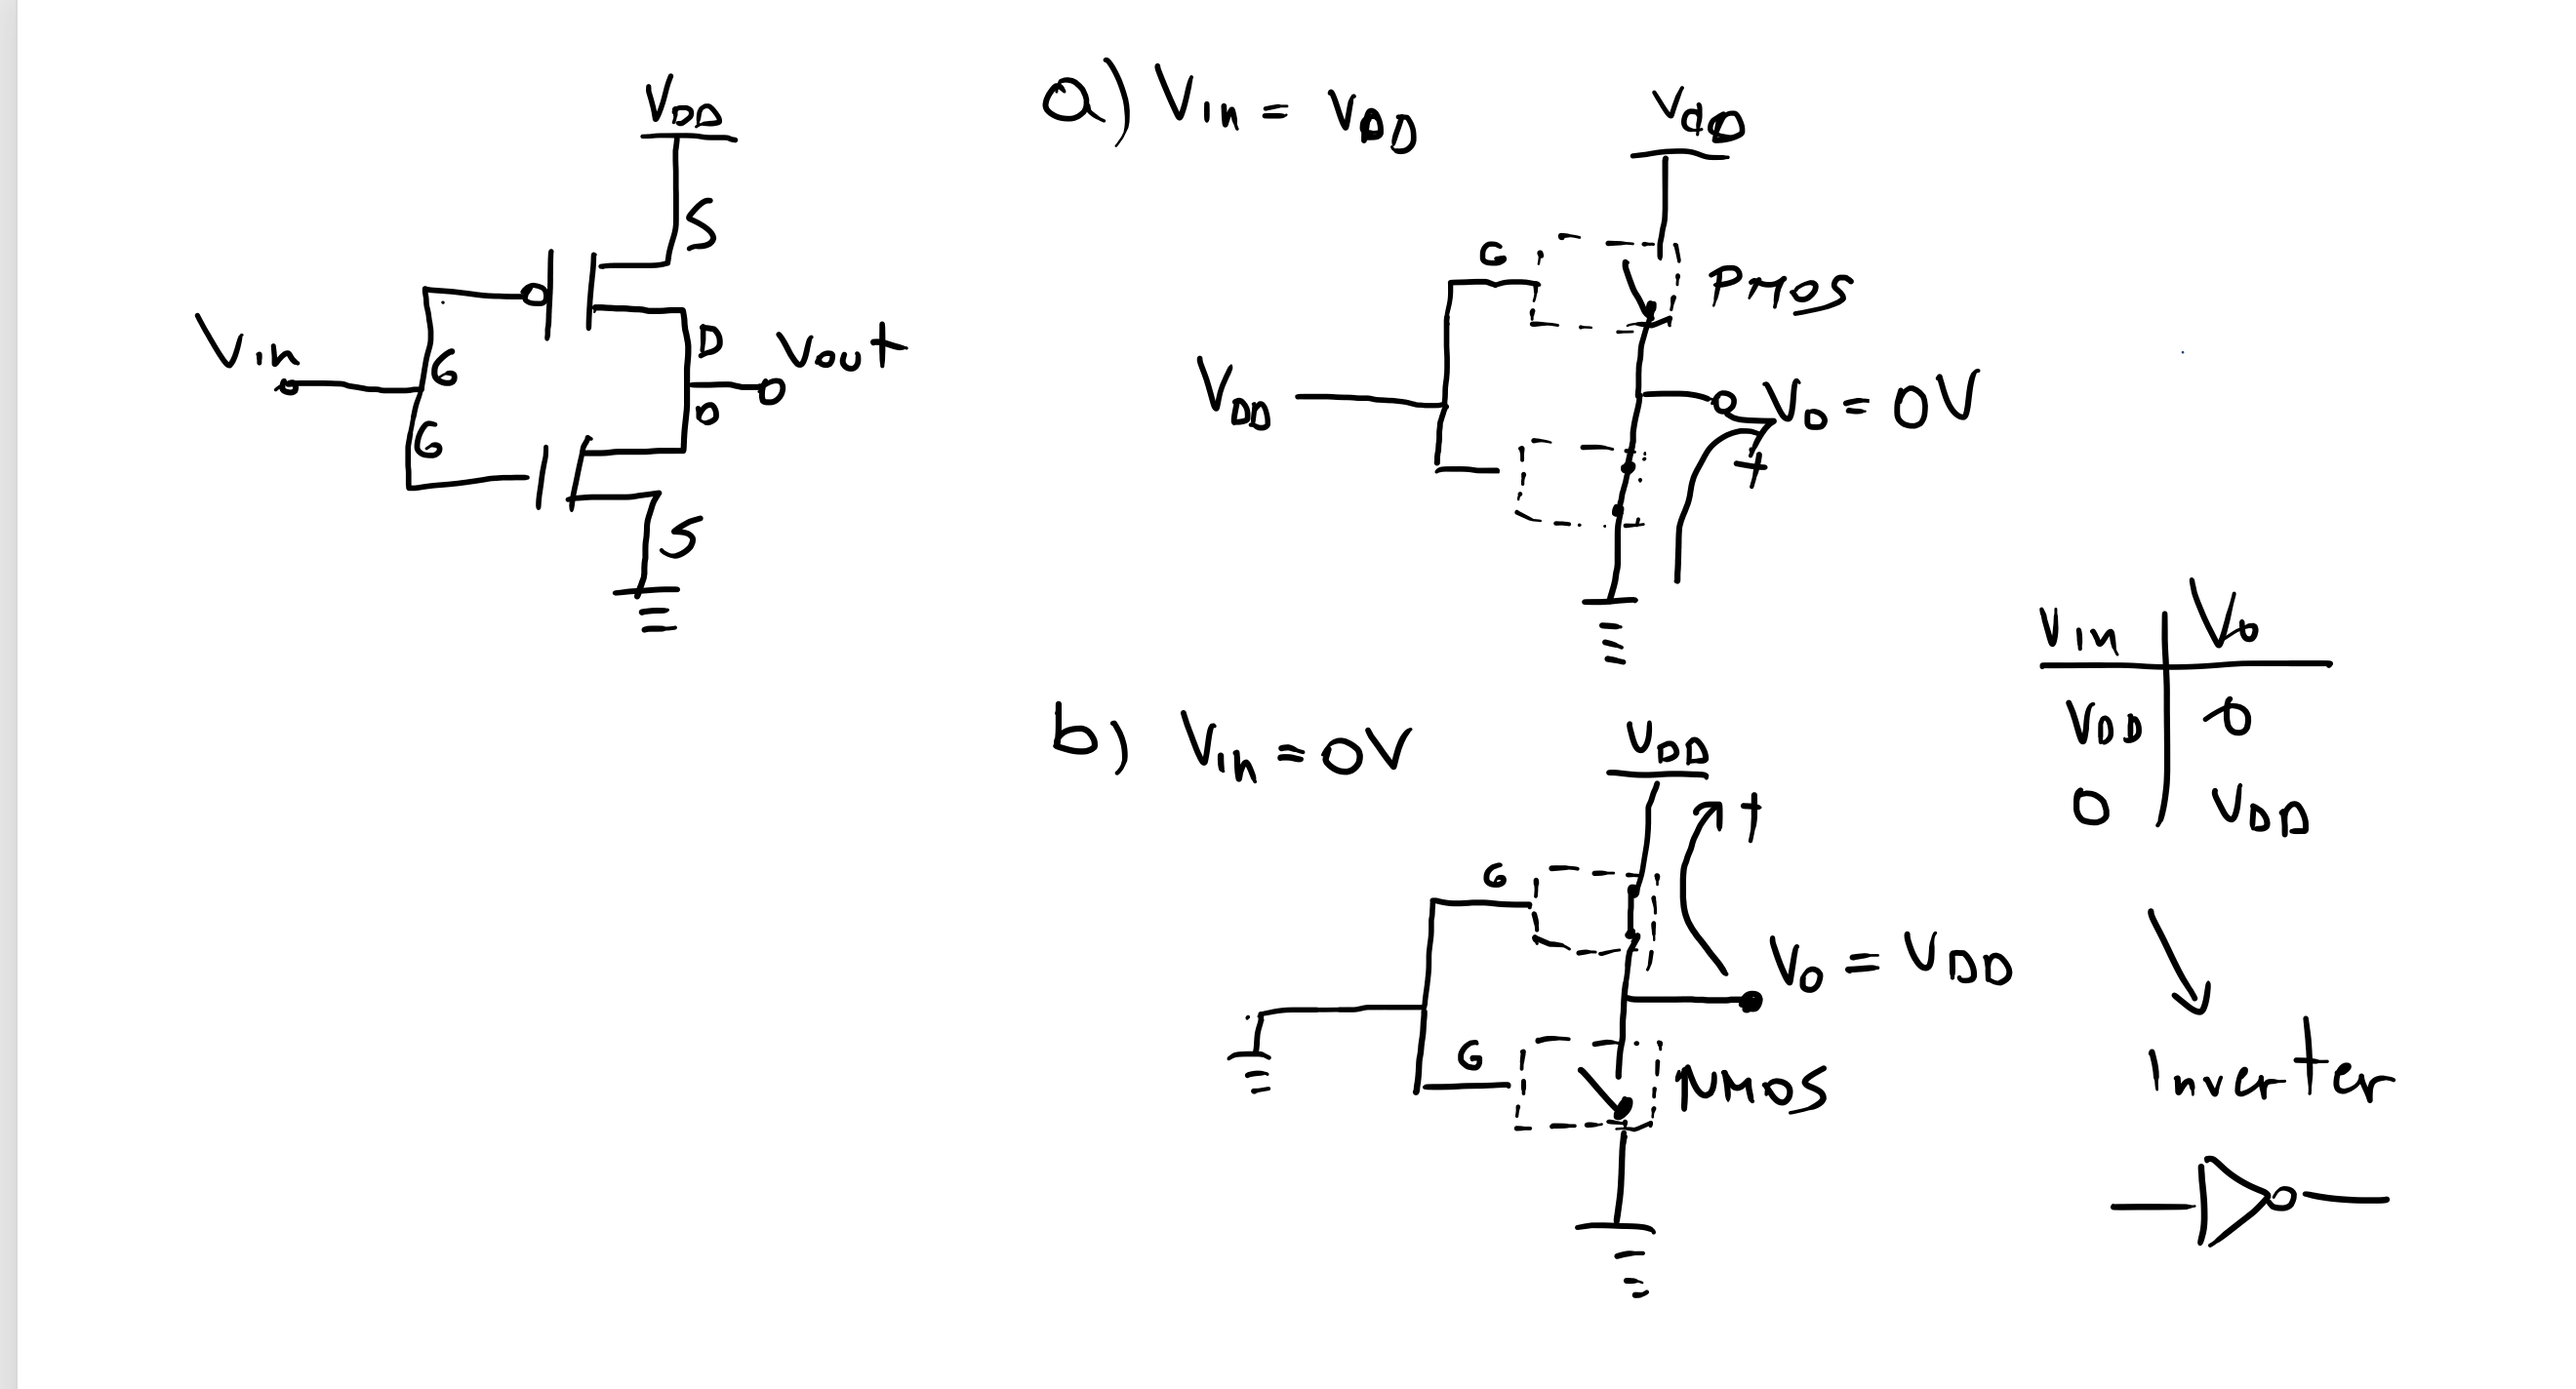 VDD
S
G
Vin
D
Vout
D
G
S
a) Vin = VDD
VdD
G
PMOS
VDD
Vo = 0V
+
b) Vin = 0V
VDD
+
G
Vo = VDD
G
NMOS
Vin Vo
VDD 0
0 VDD
Inverter